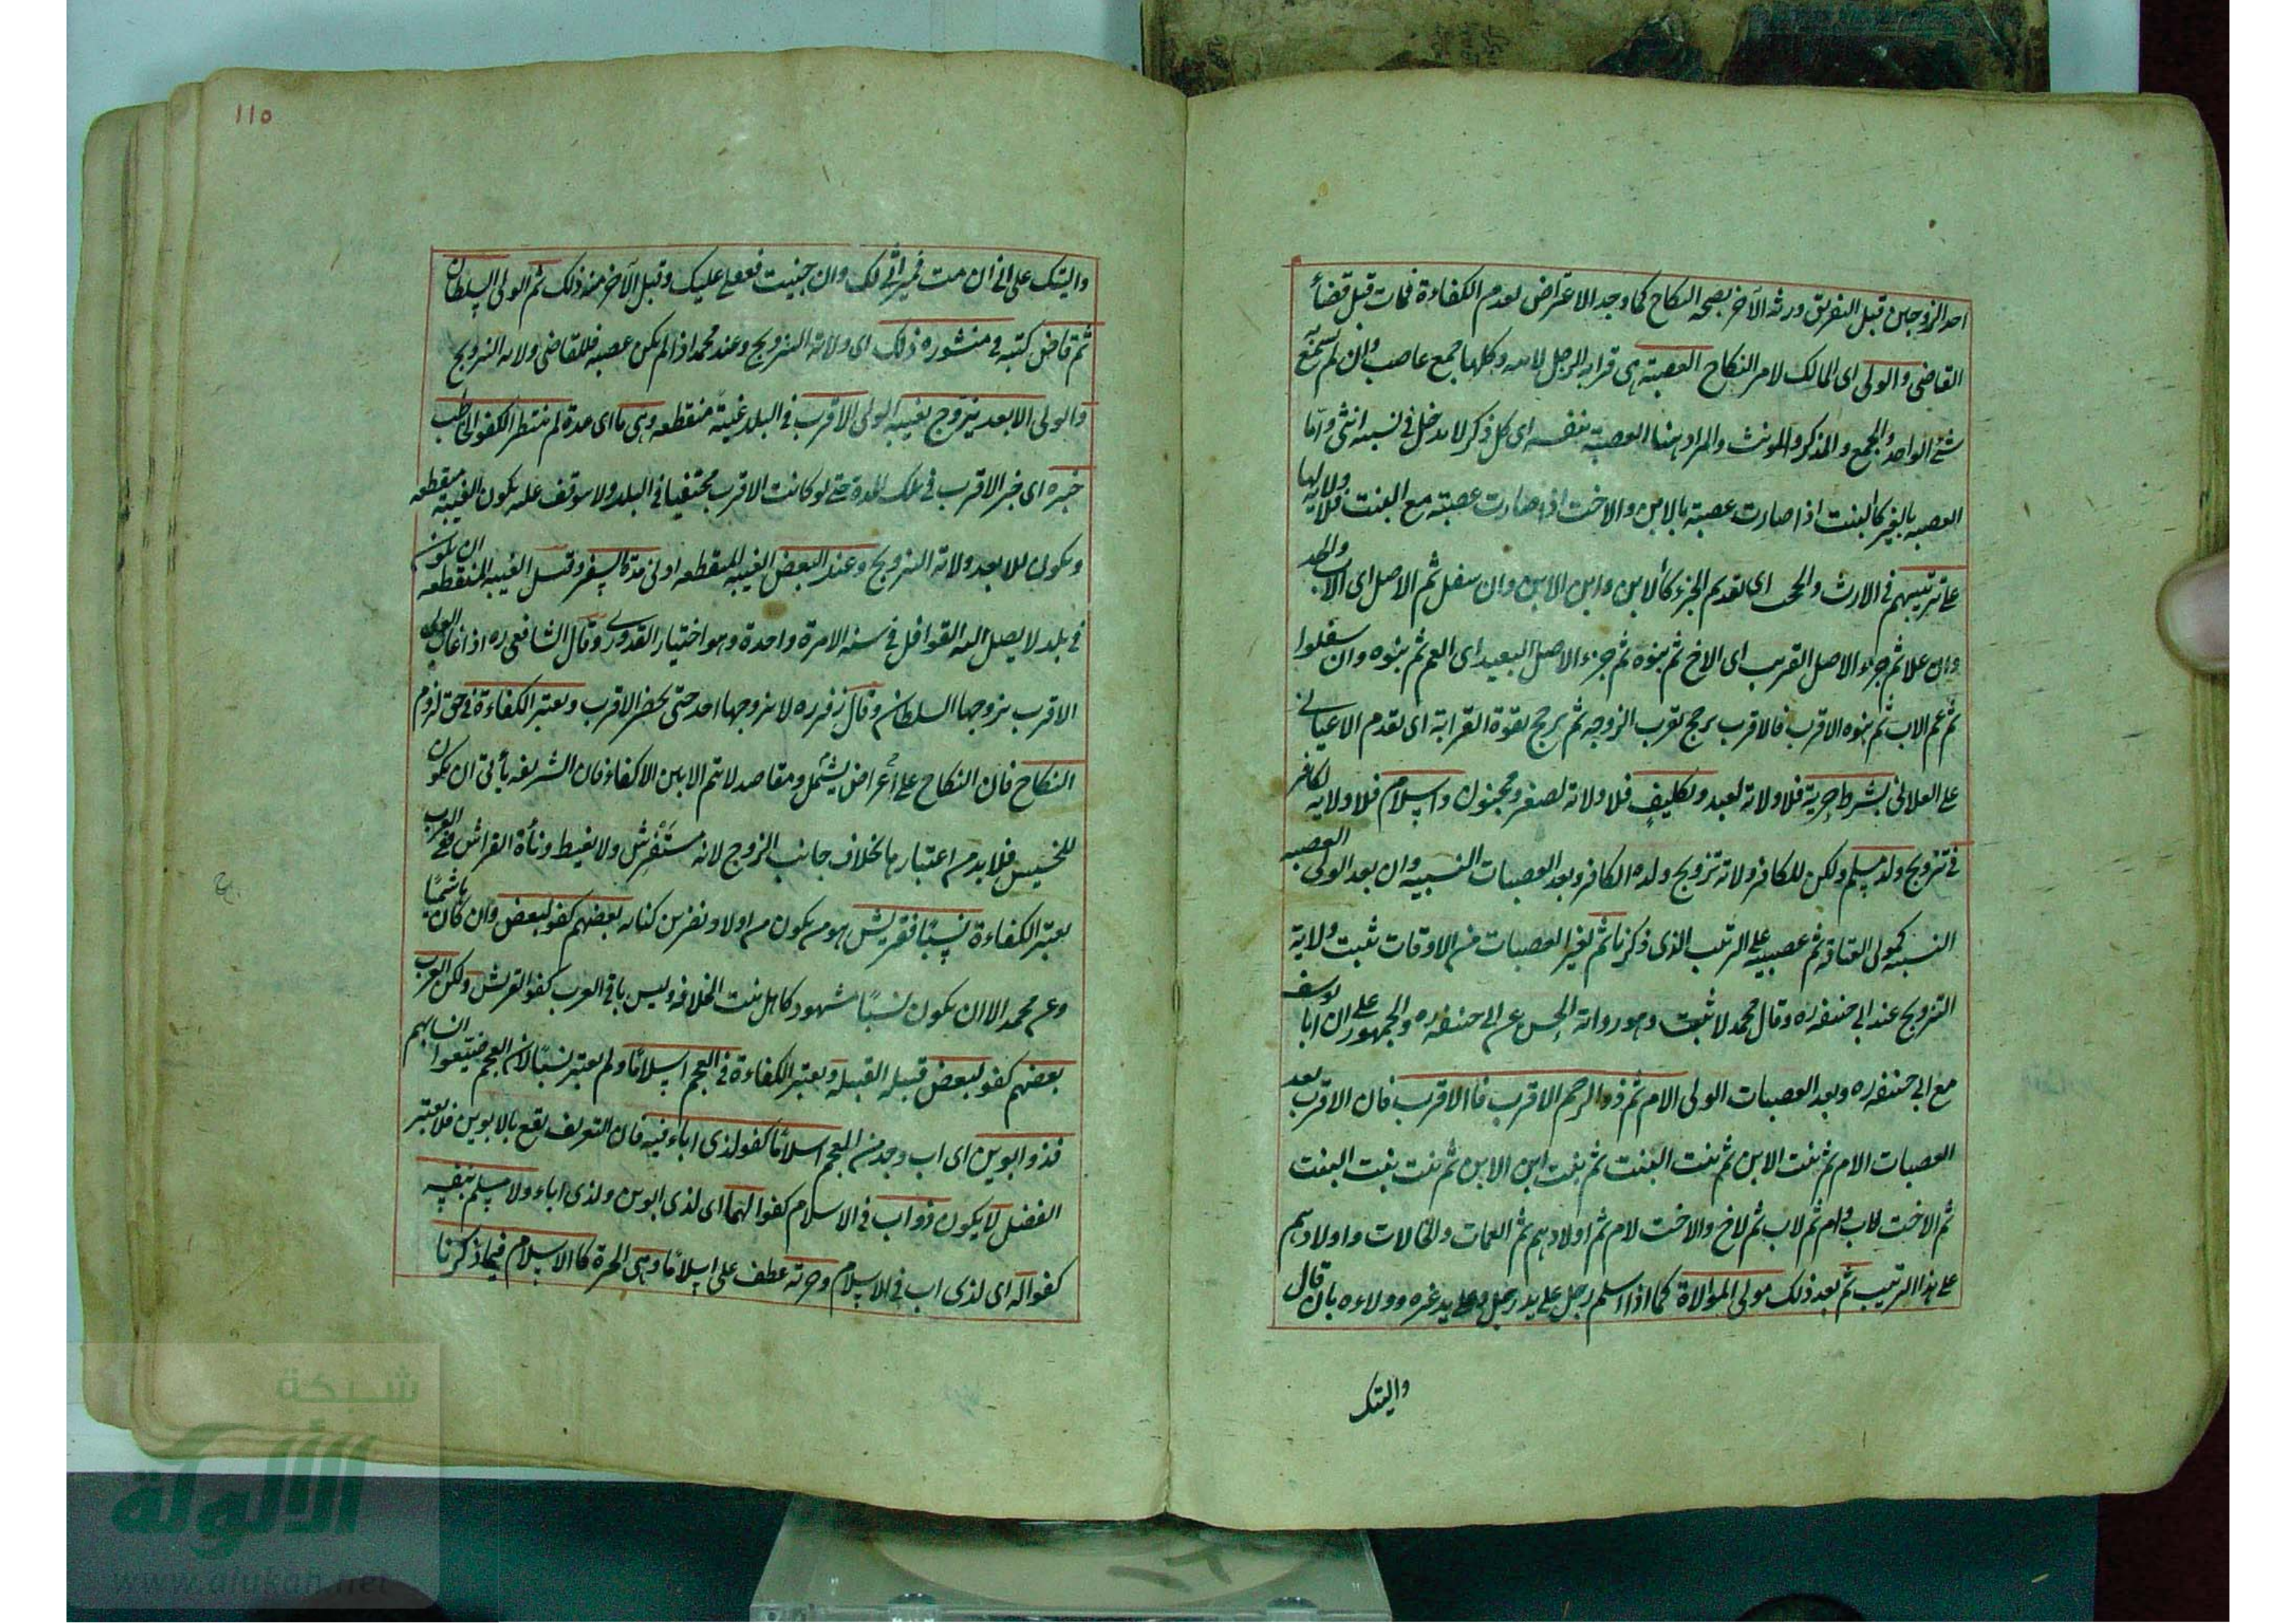 احد الزوجين قبل التفريق ورثه الآخر بصحه النكاح كما وجد الاعتراض بعدم الكفاءة فمات قبل قضاء
القاضى والولى اى المالك لامر النكاح العصبة هى قرابه الرجل لابيه وكلها جمع عاصب وان لم يسمع به
شئ الواحد والجمع والمذكر والمونث والمراد هنا العصبة بنفسه اى كل ذكر لا يدخل فى نسبه انثى واما
العصبه بالغير كالبنت اذا صارت عصبة بالابن والاخت اذا صارت عصبة مع البنت فلا ولايه لها
على ترتيبهم فى الارث والحجب اى يقدم الجزء كالابن وابن الابن وان سفل ثم الاصل اى الاب والجد
وان علا ثم جزء الاصل القريب اى الاخ ثم بنوه ثم جزء الاصل البعيد اى العم ثم بنوه وان سفلوا
ثم عم الاب ثم بنوه الاقرب فالاقرب يرجح بقرب الزوجه ثم يرجح بقوة القرابة اى يقدم الاعيانى
على العلاتى بشرط حرية فلا ولاية لعبد وتكليف فلا ولاية لصغير ومجنون واسلام فلا ولايه لكافر
فى تزويج ولد مسلم ولكن للكافر ولاية تزويج ولده الكافر وبعد العصبات النسبيه وان بعد الولى العصبه
النسبه كمولى العتاقه ثم عصبيه على الترتيب الذى ذكرنا ثم لغير العصبات من الاوقات ثبت ولاية
التزويج عند ابى حنيفه ره وقال محمد لا تثبت وهو رواية الحسن عن ابى حنيفه ره والجمهور على ان ابا يوسف
مع ابى حنيفه ره وبعد العصبات الولى الام ثم ذو الرحم الاقرب فاالاقرب فان الاقرب بعد
العصبات الام ثم بنت الابن ثم بنت البنت ثم بنت ابن الابن ثم بنت بنت البنت
ثم الاخت لاب وام ثم لاب ثم لاخ والاخت لام ثم اولادهم ثم العمات والخالات واولادهم
على هذا الترتيب ثم بعد ذلك مولى الموالاة كما اذا اسلم رجل على يد رجل وعلى يد غيره وولاءه بان قال
واليتك
١١٥
واليتك على انى ان مت فميراثى لك وان جنيت فعقلى عليك وقبل الآخر منه ذلك ثم الولى السلطان
ثم قاض كتبه فى منشوره ذلك اى ولاية التزويج وعند محمد اذا لم يكن عصبه فللقاضى ولاية التزويج
والولى الابعد يتزوج بغيبه الولى الاقرب فى البلد غيبة منقطعه وهى ما اى مدة لم ينتظر الكفو الخاطب
خبره اى خبر الاقرب فى تلك المدة حتى لو كانت الاقرب مختفيا فى البلد ولا موقف عليه يكون الغيبه منقطعه
ويكون للابعد ولاية التزويج وعند البعض الغيبه المنقطعه ادنى مدة السفر وقيل الغيبه المنقطعه ان يكون
فى بلد لا يصل اليه القوافل فى سنه الا مرة واحدة وهو اختيار القدورى وقال الشافعى ره اذا غاب الولى
الاقرب يزوجها السلطان وقال زفر ره لا يزوجها احد حتى يحضر الاقرب ويعتبر الكفاءة فى حق لزوم
النكاح فان النكاح على أعراض يشتمل ومقاصد لا يتم الا بين الاكفاء فان الشريفه يأبى ان يكون
للخسيس فلا بد من اعتبارها بخلاف جانب الزوج لانه مستفرش ولا يغيظ دناءة الفراش ففى العرب
يعتبر الكفاءة نسبًا فقريش هو من يكون من اولاد نضر بن كنانه بعضهم كفو لبعض وان كان هاشميًا
وعن محمد الا ان يكون نسبًا مشهود كاهل بيت الخلافه وليس باقى العرب كفو القريش ولكن العرب
بعضهم كفو لبعض قبيله القبيله ويعتبر الكفاءة فى العجم اسلامًا ولم يعتبر نسبًا لان العجم ضيعوا انسابهم
فذو ابوين اى اب وجد من العجم اسلامًا كفو لذى اباء فيه فان التعريف يقع بالابوين فلا يعتبر
الفضل لا يكون ذو اب فى الاسلام كفوا لهما اى لذى ابوين ولذى اباء ولا مسلم بنفسه
كفوا له اى لذى اب فى الاسلام وحرية عطف على اسلامًا وهى الحرة كالاسلام فيما ذكرنا
شبكة
الألوكة
www.alukah.net